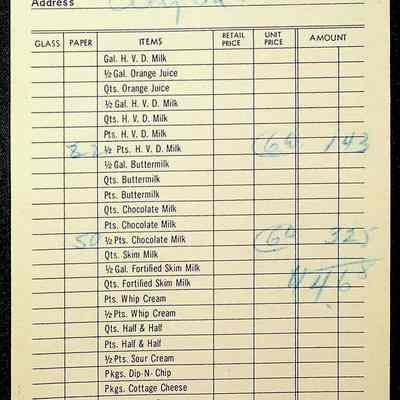 Address
GLASS PAPER ITEMS RETAIL PRICE UNIT PRICE AMOUNT
Gal. H. V. D. Milk
½ Gal. Orange Juice
Qts. Orange Juice
½ Gal. H. V. D. Milk
Qts. H. V. D. Milk
Pts. H. V. D. Milk
22 ½ Pts. H. V. D. Milk 6½ 143
½ Gal. Buttermilk
Qts. Buttermilk
Pts. Buttermilk
Qts. Chocolate Milk
Pts. Chocolate Milk
50 ½ Pts. Chocolate Milk 6½ 325
Qts. Skim Milk
½ Gal. Fortified Skim Milk
Qts. Fortified Skim Milk 468
Pts. Whip Cream
½ Pts. Whip Cream
Qts. Half & Half
Pts. Half & Half
½ Pts. Sour Cream
Pkgs. Dip-N-Chip
Pkgs. Cottage Cheese